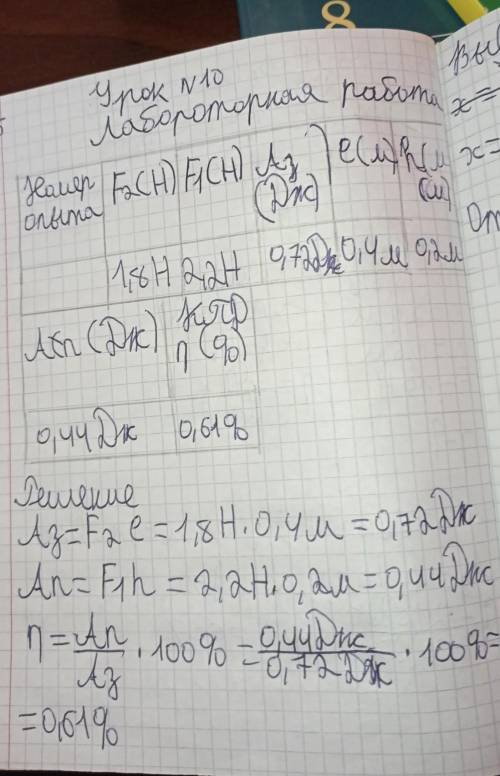 8
Урок N10
Лабороторная работа
Номер опыта F2(Н) F1(Н) Аз (Дж) l(м) h(м)
1,8Н 2,2Н 0,72Дж 0,4м 0,2м
Ап (Дж) КПД η (%)
0,44Дж 0,61%
Решение
Аз=F2 l=1,8Н·0,4м=0,72Дж
Ап=F1h=2,2Н·0,2м=0,44Дж
η=Ап/Аз·100%=0,44Дж/0,72Дж·100%=
=0,61%
x=
x=